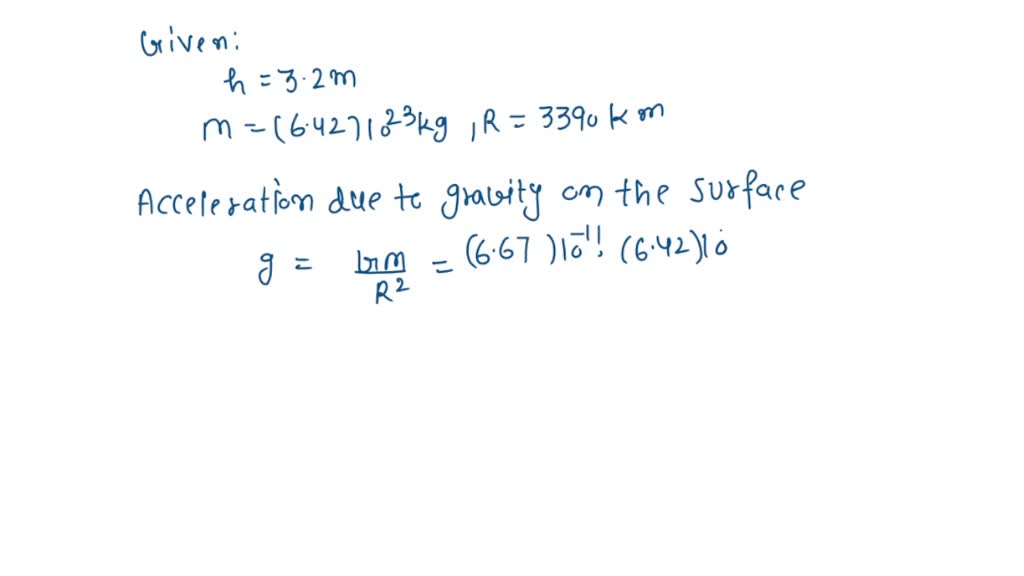 Given:
h = 3.2m
m = (6.42)10²³kg , R = 3390 km
Acceleration due to gravity on the surface
g = GM/R² = (6.67)10⁻¹¹. (6.42)10